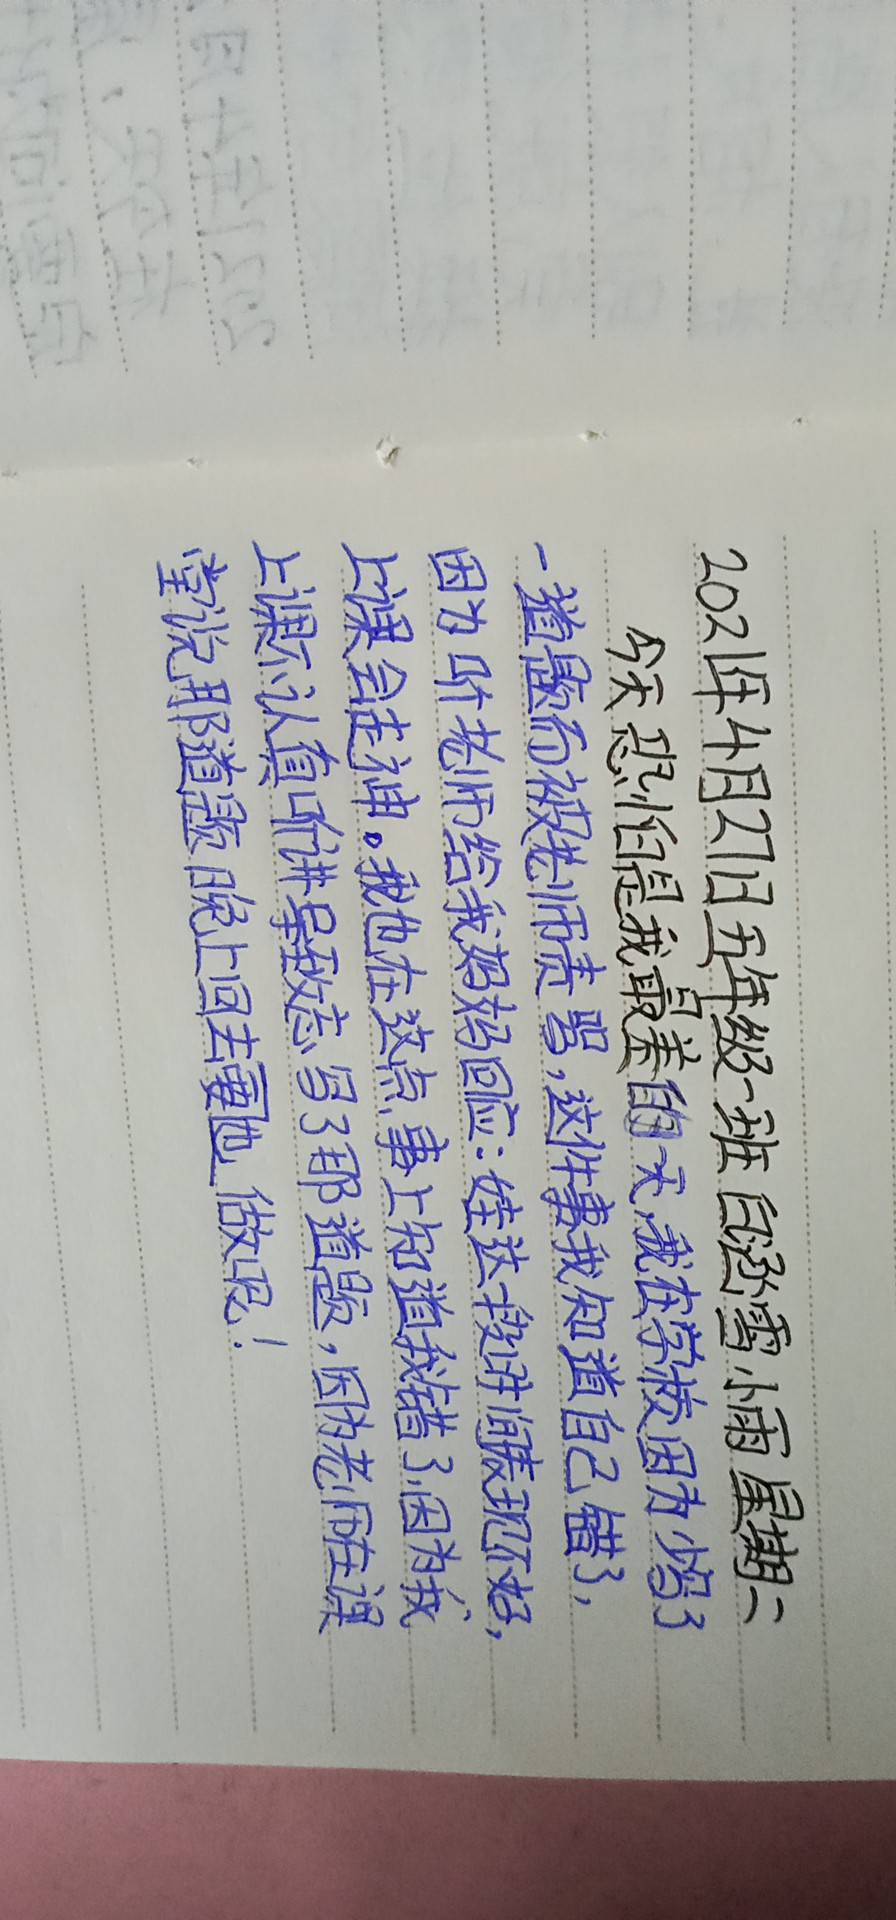 2021年4月27日五年级一班 白洛雪 小雨 星期二
今天恐怕是我最差的一天,我在学校因为少写了
一道题而被老师责骂,这件事我知道自己错了,
因为听老师给我妈妈回应:娃这一段时间表现不好,
上课会走神。我也在这点事上知道我错了,因为我
上课不认真听讲导致忘写了那道题,因为老师在课
堂说那道题晚上回去要地做呢!